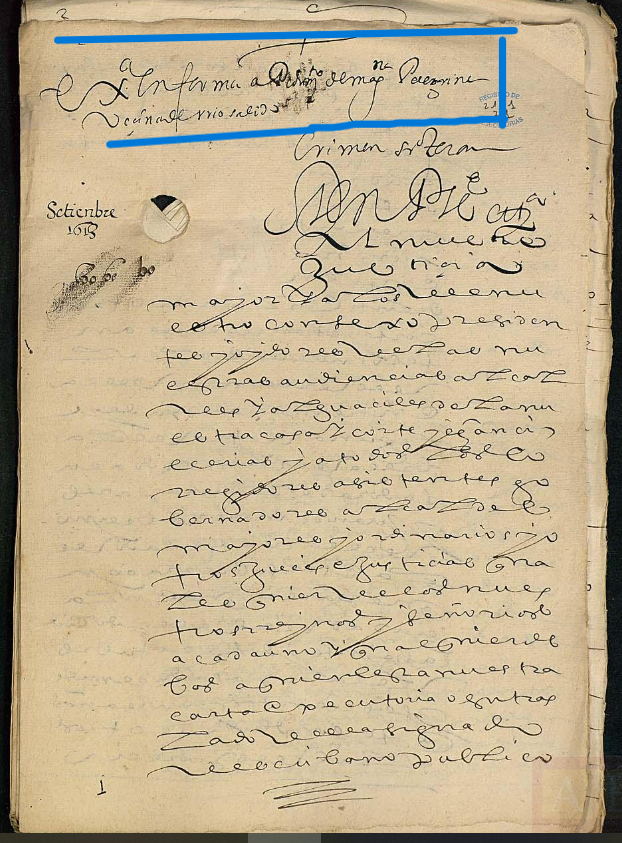 2
exª Informa a Pedimto de mª Pelegrina
Vecina de Riosalido
REGISTRO DE
EJECUTORIAS
Crimen Sr Teran
Setiembre
1613
Don Phe etcª
Al nuestro
Justicia
mayor y a los del nu
estro consexo presiden
tes y oydores de las nu
estras audiencias alcal
des y alguaciles de la nu
estra casa y corte y chanci
llerias y a todos los co
rregidores asistentes go
bernadores alcaldes
mayores y ordinarios y o
tros jueces e justicias qua
lesquier de los nues
tros rreynos y señorios
a cada uno y qualquier de
bos a quien esta nuestra
carta executoria o su tras
lado della signado
de escribano publico
1